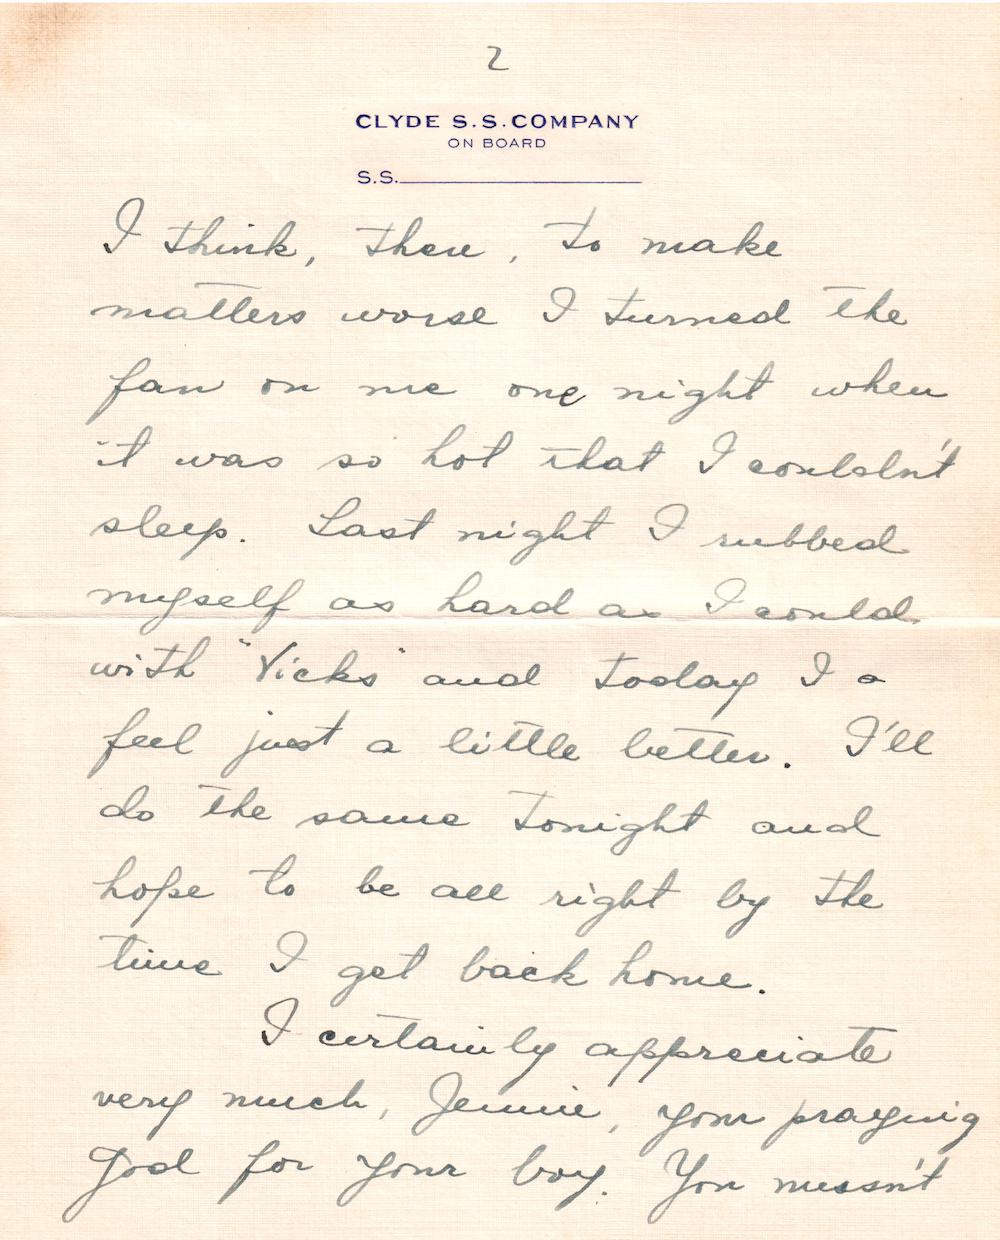 2
CLYDE S.S. COMPANY
ON BOARD
S.S.
I think, then, to make
matters worse I turned the
fan on me one night when
it was so hot that I couldn't
sleep. Last night I rubbed
myself as hard as I could
with "Vicks" and today I a
feel just a little better. I'll
do the same tonight and
hope to be all right by the
time I get back home.
I certainly appreciate
very much, Jennie, your praying
God for your boy. You mussn't